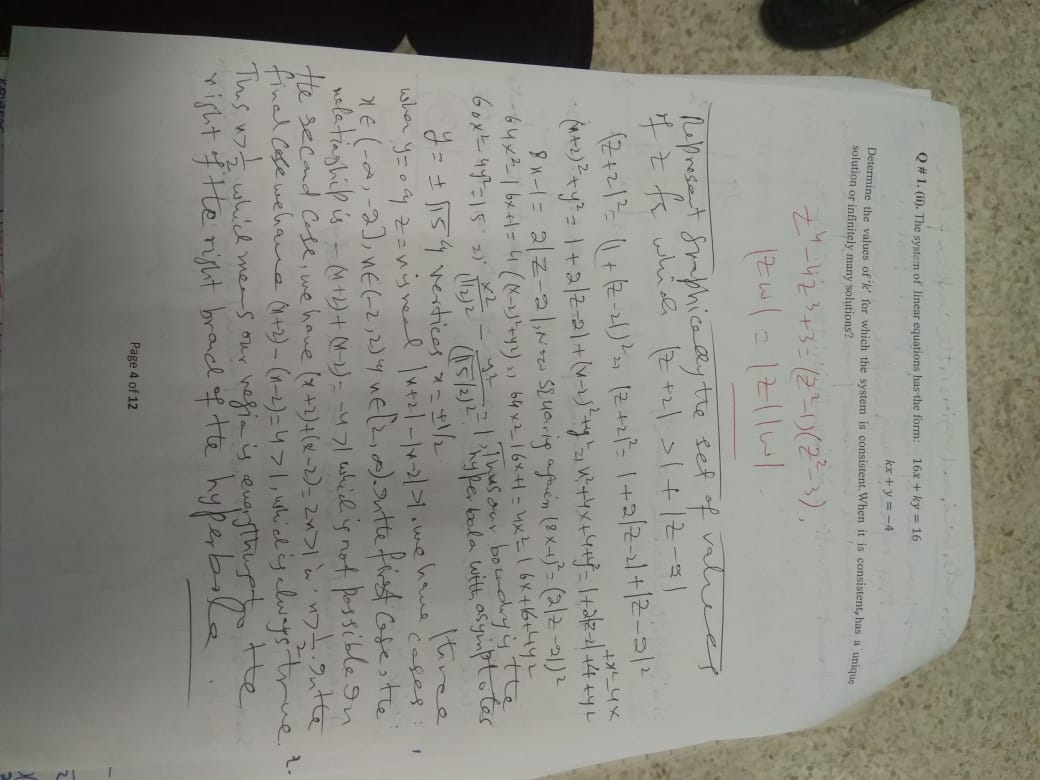 Q # 1. (ii). The system of linear equations has the form: 16x + ky = 16
kx + y = −4
Determine the values of 'k' for which the system is consistent. When it is consistent, has a unique
solution or infinitely many solutions?
z⁴-4z³+3=(z²-1)(z²-3),
|zw| = |z||w|
Represent graphically the set of values
of z for which |z+2| >1+|z-2|
|z+2|²= (1+|z-2|)², |z+2|²= 1+2|z-2|+|z-2|²
+x²-4x
(x+2)²+y² = 1+2|z-2|+(x-2)²+y², x²+4x+4+y²=1+2|z-2|+4+y²
8x-1= 2|z-2|, Now squaring again (8x-1)²=(2|z-2|)²
64x²-16x+1=4((x-2)²+y²), 64x²-16x+1=4x²-16x+16+4y²
60x²-4y²=15, x²/(1/2)² - y²/(√15/2)²=1, Thus our boundry is the
hyperbola with asymptotes
y= ±√15 vertices x=±1/2
when y=0 z=x is real |x+2|-|x-2|>1. we have three
cases:
x∈(-∞,-2], x∈(-2,2) x∈[2,∞). In the first case, the
relationship is -(x+2)+(x-2)=-4>1 which is not possible In
the second case, we have (x+2)+(x-2)=2x>1 x>1/2. In the
final case we have (x+2)-(x-2)=4>1, which is always true.
Thus x>1/2 which means our region is everything to the
right of the right branch of the hyperbola.
Page 4 of 12